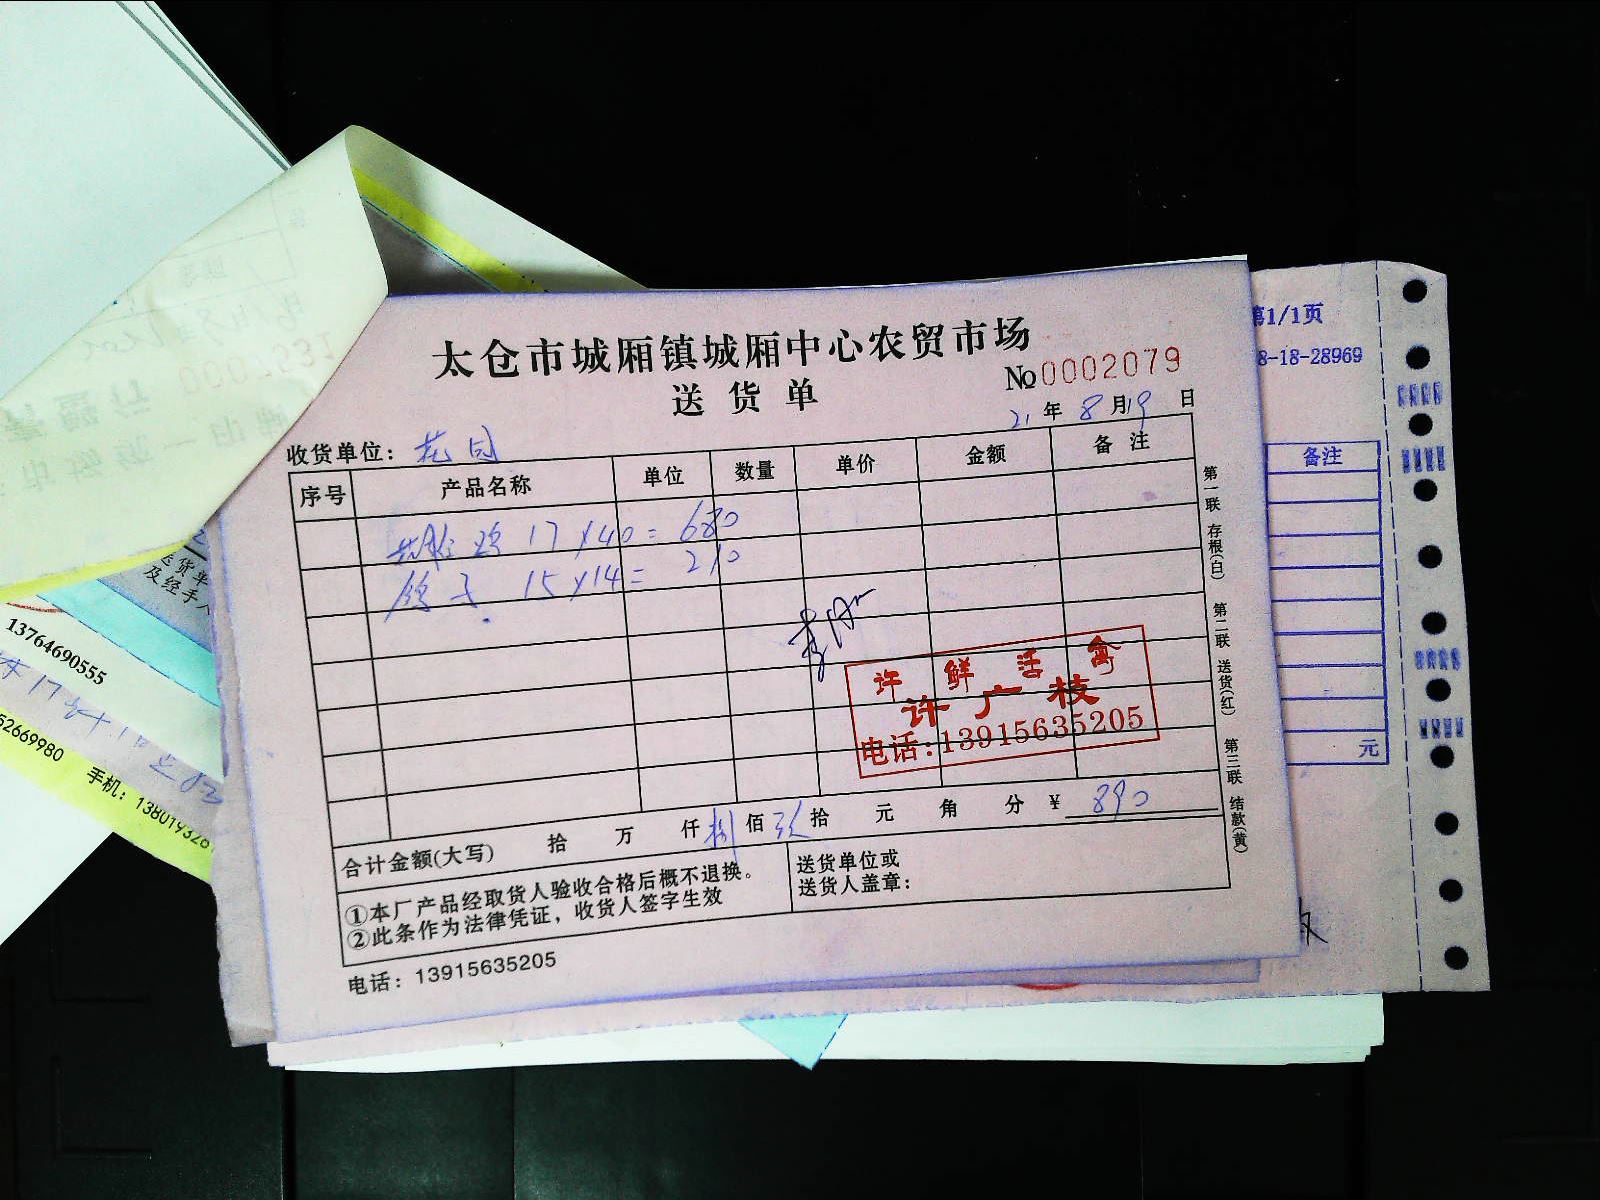 太仓市城厢镇城厢中心农贸市场
送货单
№0002079
21年8月19日
收货单位：花园
序号 产品名称 单位 数量 单价 金额 备注
17×40=680
鸽子 15×14=210
许鲜活禽
许广枝
电话:13915635205
合计金额(大写) 拾 万 仟 捌佰 玖拾 元 角 分 ¥ 890
①本厂产品经取货人验收合格后概不退换。
②此条作为法律凭证，收货人签字生效
送货单位或
送货人盖章：
电话：13915635205
第一联 存根(白) 第二联 送货(红) 第三联 结款(黄)
第1/1页
8-18-28969
备注
元
送货单
及经手人
13764690555
52669980 手机：138019328